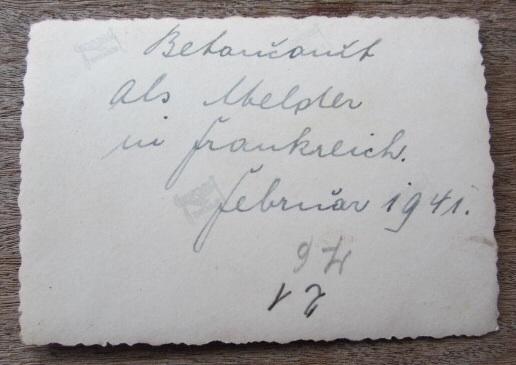 Betoncourt
als Melder
in Frankreich.
Februar 1941.